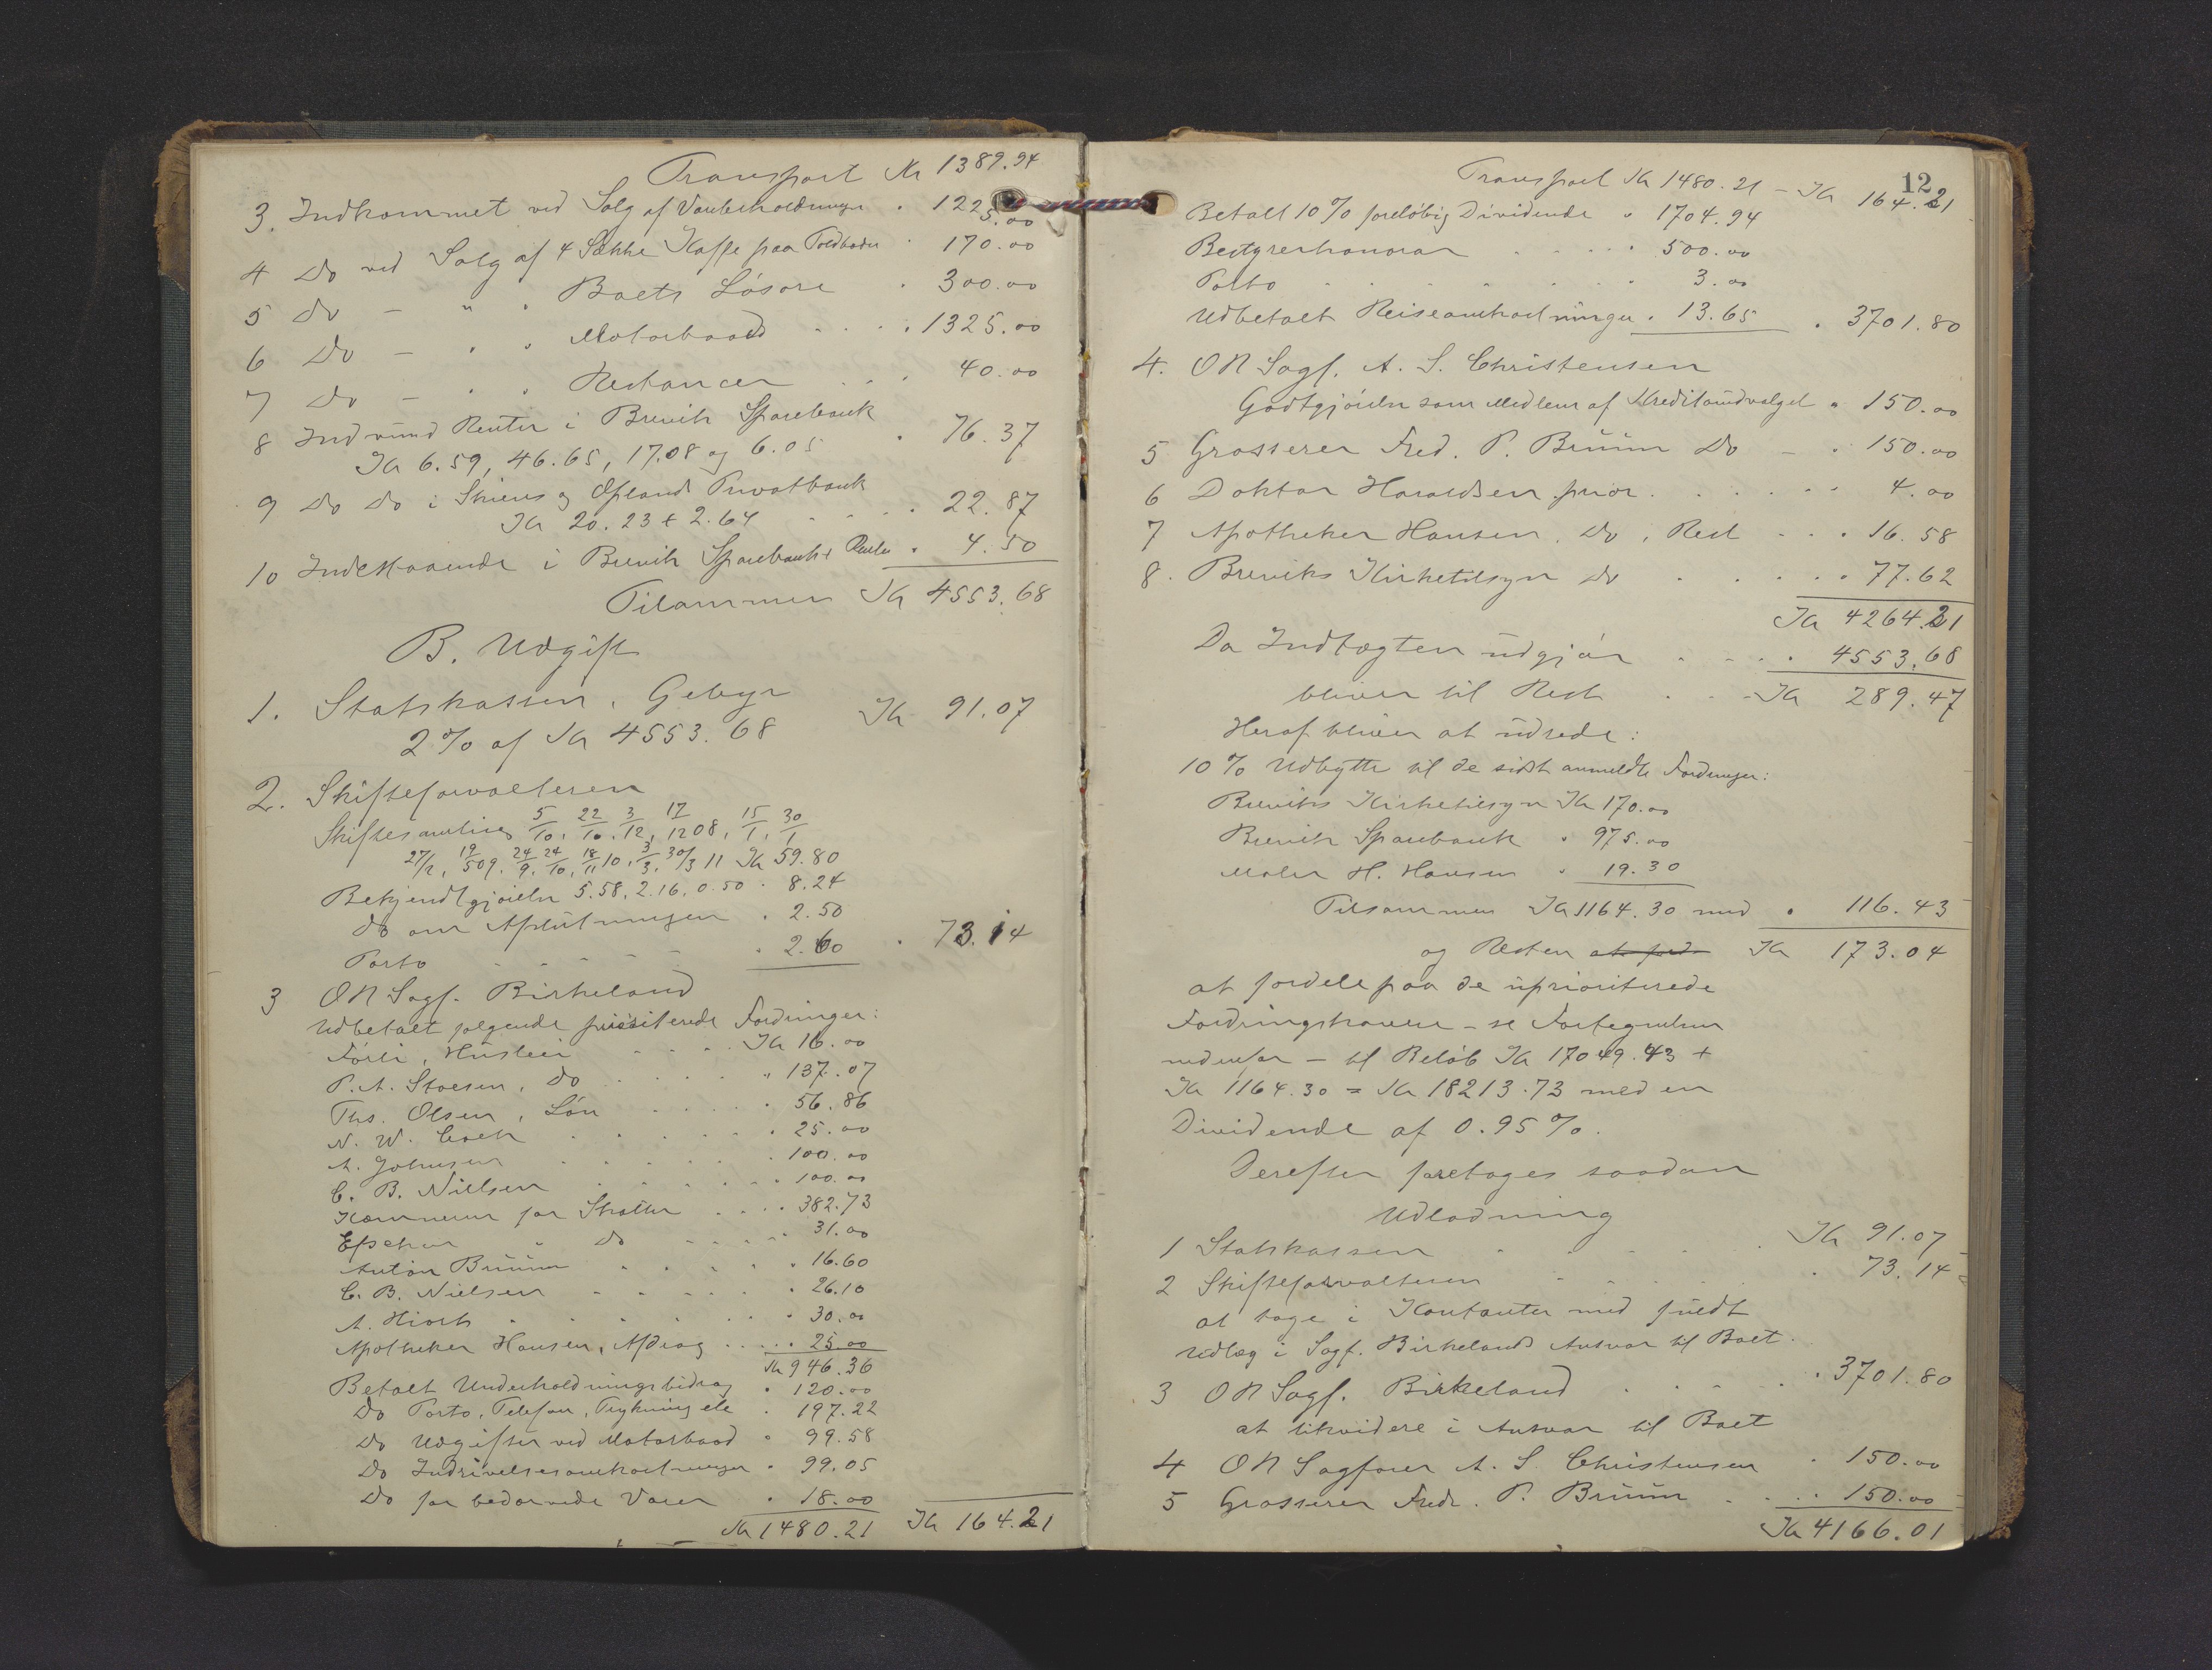 Transport Kr 1389.94
3. Indkommet ved Salg af Varebeholdninger " 1225.00
4 Do ved Salg af 4 Sække Kaffe paa Toldboden " 170.00
5 Do - " " Boets Løsøre " 300.00
6 Do - " " Motorbaads . . . 1325.00
7 Do - " " Restancer . . . 40.00
8 Indvund Renter i Brevik Sparebank
Kr 6.59, 46.65, 17.08 og 6.05 " 76.37
9 Do Do i Skiens og Opland Privatbank
Kr 20.23 + 2.64 . . . . 22.87
10 Indestaaende i Brevik Sparebank + Renter " 4.50
Tilsammen Kr 4553.68
B. Udgift
1. Statskassen, Gebyr
2% af Kr 4553.68 Kr 91.07
2. Skifteforvalteren
Skiftesamling 5/10, 22/10, 3/12, 17/12 08, 15/1, 30/1
27/2, 19/5 09, 24/9, 24/10, 18/11 10, 3/3, 30/3 11 Kr 59.80
Bekjendtgjørelse 5.58, 2.16, 0.50 " 8.24
Do om Afslutningen " 2.50
Porto - - - - - " 2.60 " 73.14
3 ON Sagf. Birkeland
Udbetalt følgende prioriterede Fordringer:
Førli, Husleie . . . Kr 16.00
P. A. Stoesen, Do . . . . " 137.07
Ths. Olsen, Løn . . . . 56.86
N. W. Coch . . . . . 25.00
A. Johnsen . . . . . 100.00
C. B. Nielsen . . . . . 100.00
Kæmneren for Skatter . . . . 382.73
Eftschou " Do . . . . . 31.00
Anton Bruun . . . . . 16.60
C. B. Nielsen - - - - - . 26.10
A. Hiorth . . . . . . 30.00
Apotheker Hansen, Afdrag . . . . . 25.00
Kr 946.36
Betalt Underholdningsbidrag " 120.00
Do Porto, Telefon, Trykning etc " 197.22
Do Udgifter ved Motorbaad " 99.58
Do Indrivelsesomkostninger " 99.05
Do for bedærvede Varer " 18.00
Kr 1480.21 Kr 164.21
12
Transport Kr 1480.21 - Kr 164.21
Betalt 10% foreløbig Dividende " 1704.94
Bestyrerhonorar . . . . 500.00
Porto . . . . . . 3.00
Udbetalt Reiseomkostninger . 13.65 . 3701.80
4. ON Sagf. A. S. Christensen
Godtgjørelse som Medlem af Kreditorudvalget " 150.00
5 Grosserer Fred. P. Bruun Do - . 150.00
6 Doktor Haraldsen prior. . . . . . . 4.00
7 Apotheker Hansen, Do, Rest . . . 16.58
8. Breviks Kirketilsyn Do . . . . . 77.62
Kr 4264.21
Da Indtægten udgjør . . . . 4553.68
bliver til Rest . . . Kr 289.47
Heraf bliver at udrede:
10% Udbytte til de sidst anmeldte Fordringer:
Breviks Kirketilsyn Kr 170.00
Brevik Sparebank " 975.00
Maler H. Hansen " 19.30
Tilsammen Kr 1164.30 med . 116.43
og Resten at ford Kr 173.04
at fordele paa de uprioriterede
Fordringshavere - se Fortegnelsen
nedenfor - til Beløb Kr 17049.43 +
Kr 1164.30 = Kr 18213.73 med en
Dividende af 0.95%.
Derefter foretages saadan
Udlodning
1 Statskassen . . . . Kr 91.07
2 Skifteforvalteren - . . . 73.14
at tage i Kontanter med fuldt
Udlæg i Sagf. Birkelands Ansvar til Boet.
3 ON Sagf. Birkeland . . . . . 3701.80
at likvidere i Ansvar til Boet
4 ON Sagfører A. S. Christensen . 150.00
5 Grosserer Fredr. P. Bruun . . . . 150.00
Kr 4166.01